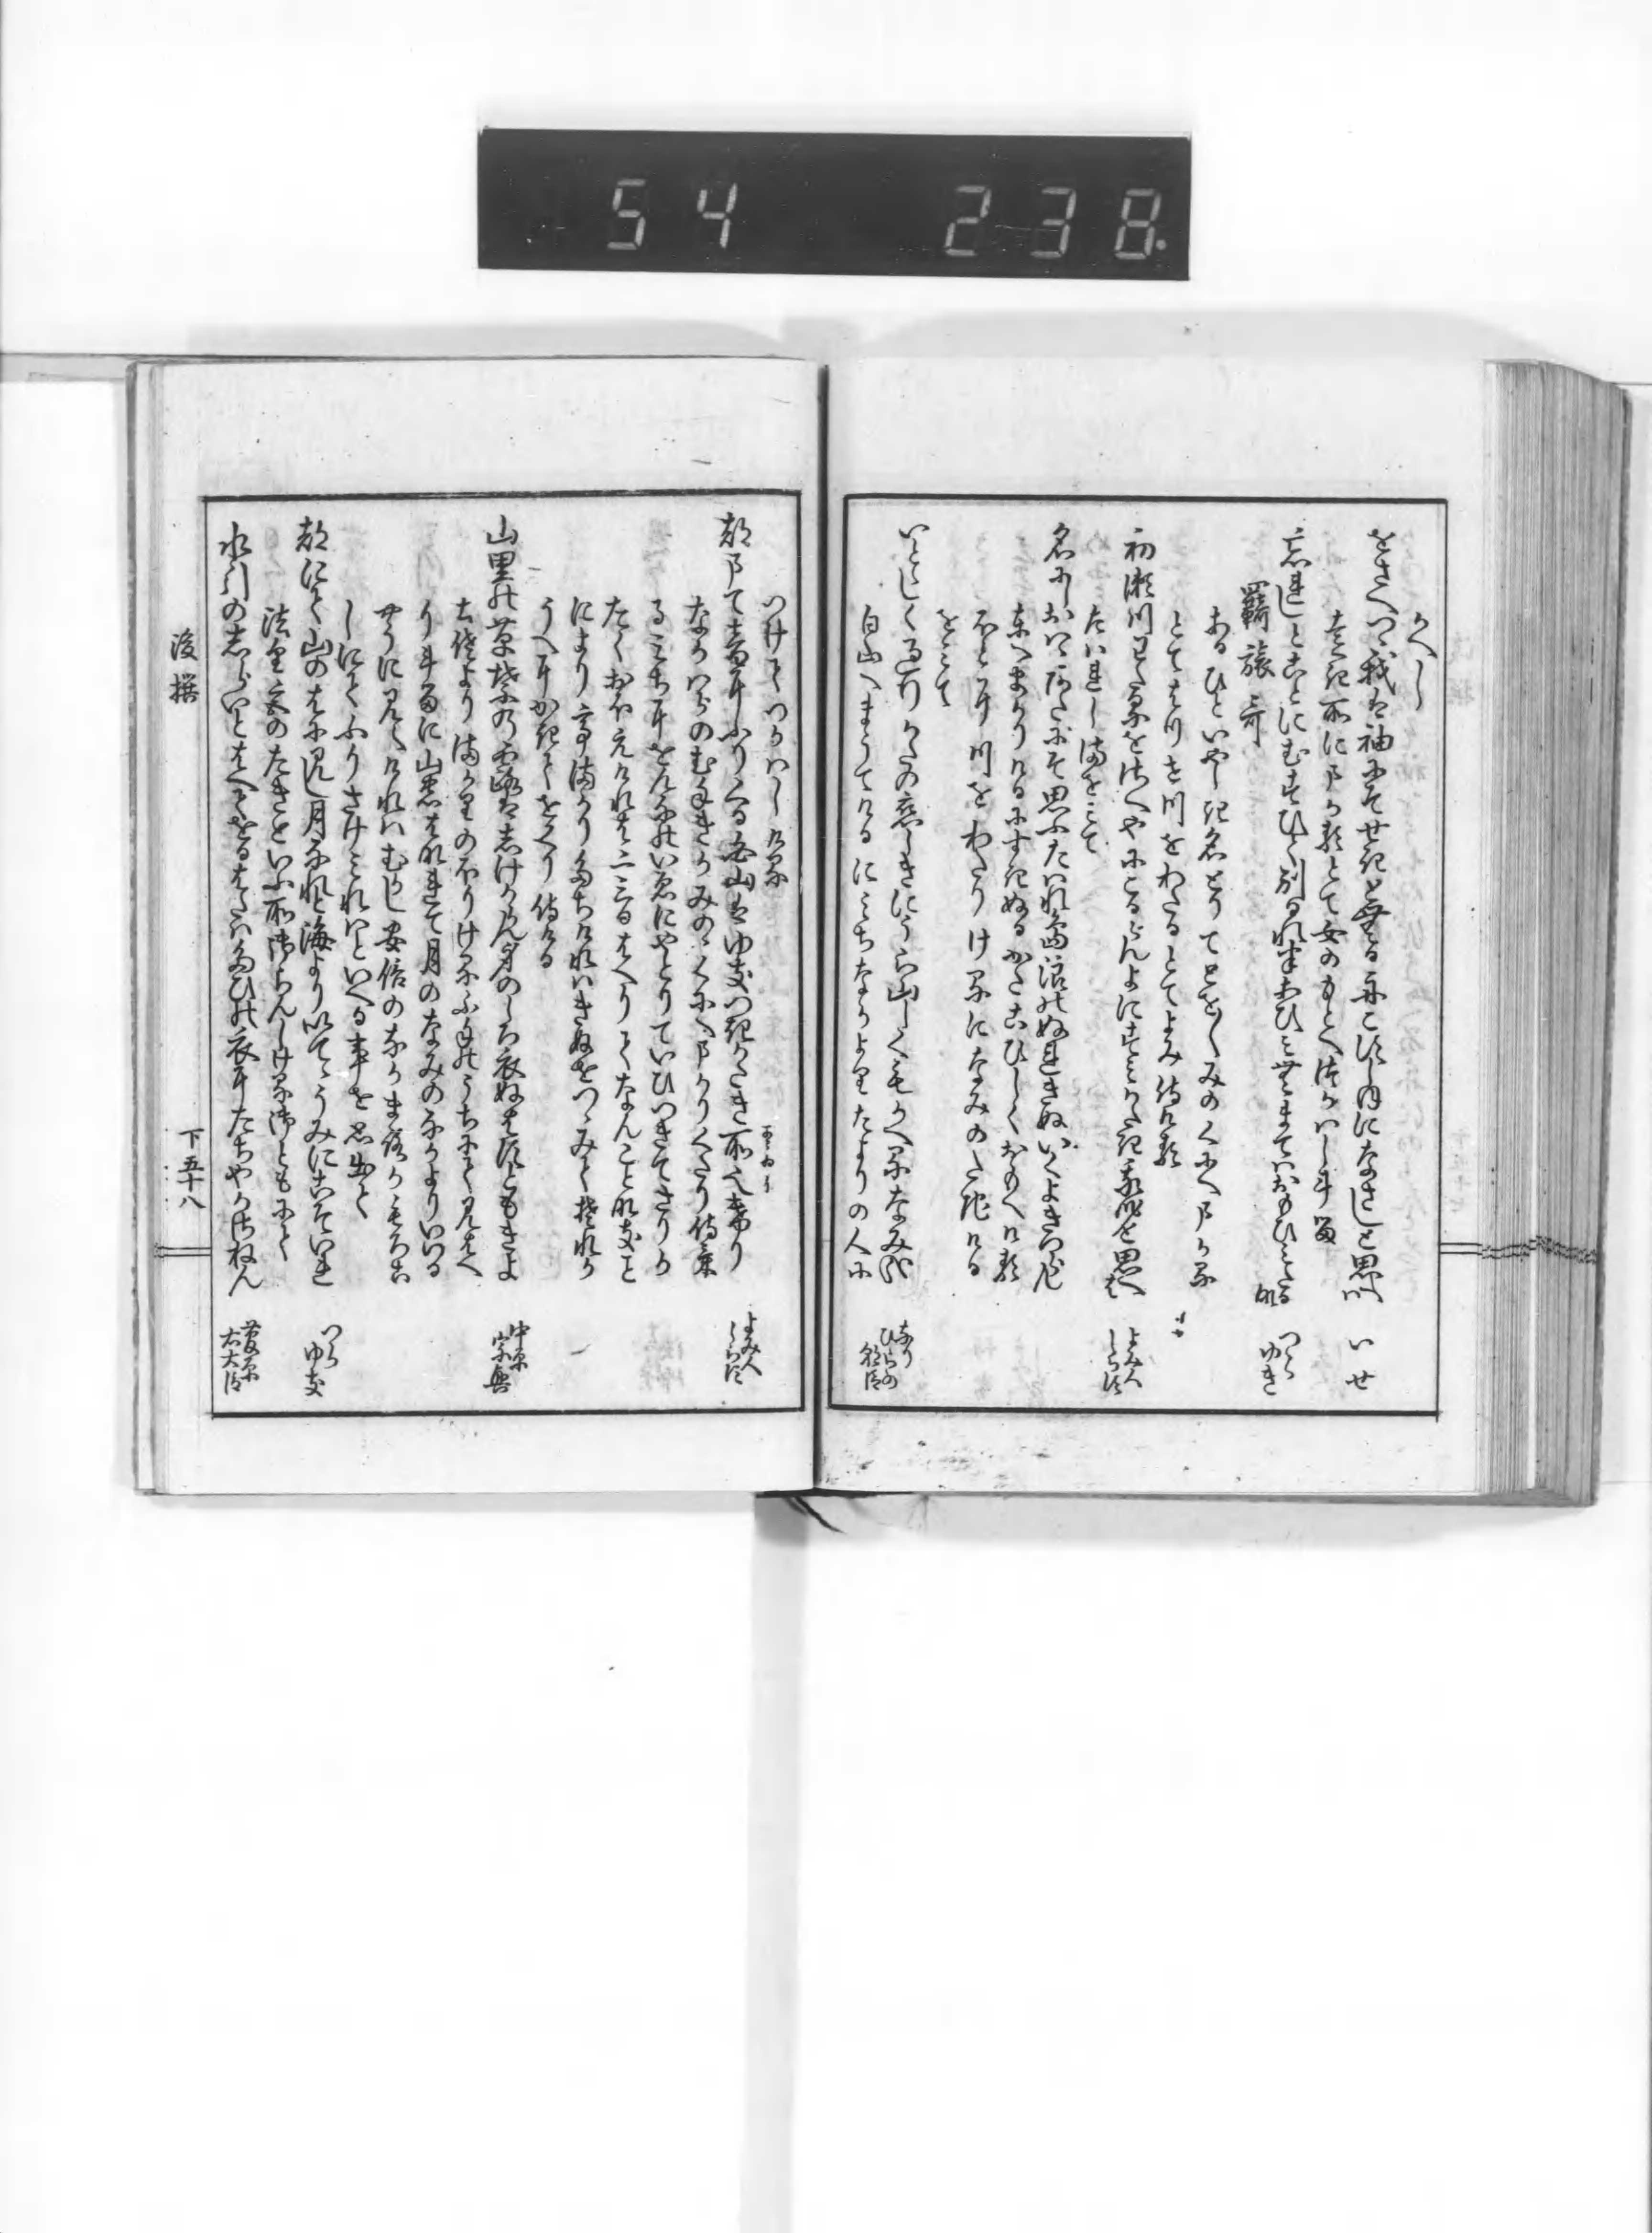 54 238
かへし
をさへつゝ我は袖にそせきとむる舟こす塩になさしと思へは いせ
とほき所にまかるとて女のもとへつかはしける
忘れしとことにむすひて別るれはあひ見むまてはおもひみたるな つらゆき
羇旅哥
ある人いやしき名とりてとほたあふみのくにへまかる
とてはつせ川をわたるとてよみ侍ける
初瀬川わたるせさへやにこるらんよにすみかたき我身と思へは よみ人しらす
たはれしまをみて
名にしおはゝあたにそ思ふたはれ嶋浪のぬれきぬいくよきつらん
東へまかりけるにすきぬるかたこひしくおもえける
ほとに川をわたりけるになみのたちける
をみて
いとゝしく過行かたの恋しきにうら山しくもかへるなみ哉 なりひらの朝臣
白山へまうてけるにみちなかよりたよりの人に
つけてつかはしける
都まて音にふりくる白山はゆきつきかたき所なりけり よみ人しらす
なかはらのむねきかみのゝくにへまかりくたり侍
るみちに女の家にやとりていひつきてさりか
たくおほえけれは二三日はへりてなんことなきこと
によりてまかりたちけれはきぬをつゝみてそれか
うへにかきてをくり侍ける
山里の草葉の露はしけからんみのしろ衣ぬはすともきよ 中原宗興
土佐よりまかりのほりけるふねのうちにて見侍
りけるに山のはならて月のなみのなかよりいつる
やうに見えけれはむかし安倍のなかまろかもろこ
しにてふりさけみれはといへる事を思出て
都にて山のはに見し月なれと海より出てうみにこそいれ つらゆき
法皇宮のたきといふ所御らんしける御ともにて
水引のしらいとはへてをるはたは旅の衣にたちやかさねん 菅原右大臣
後撰
下 五十八